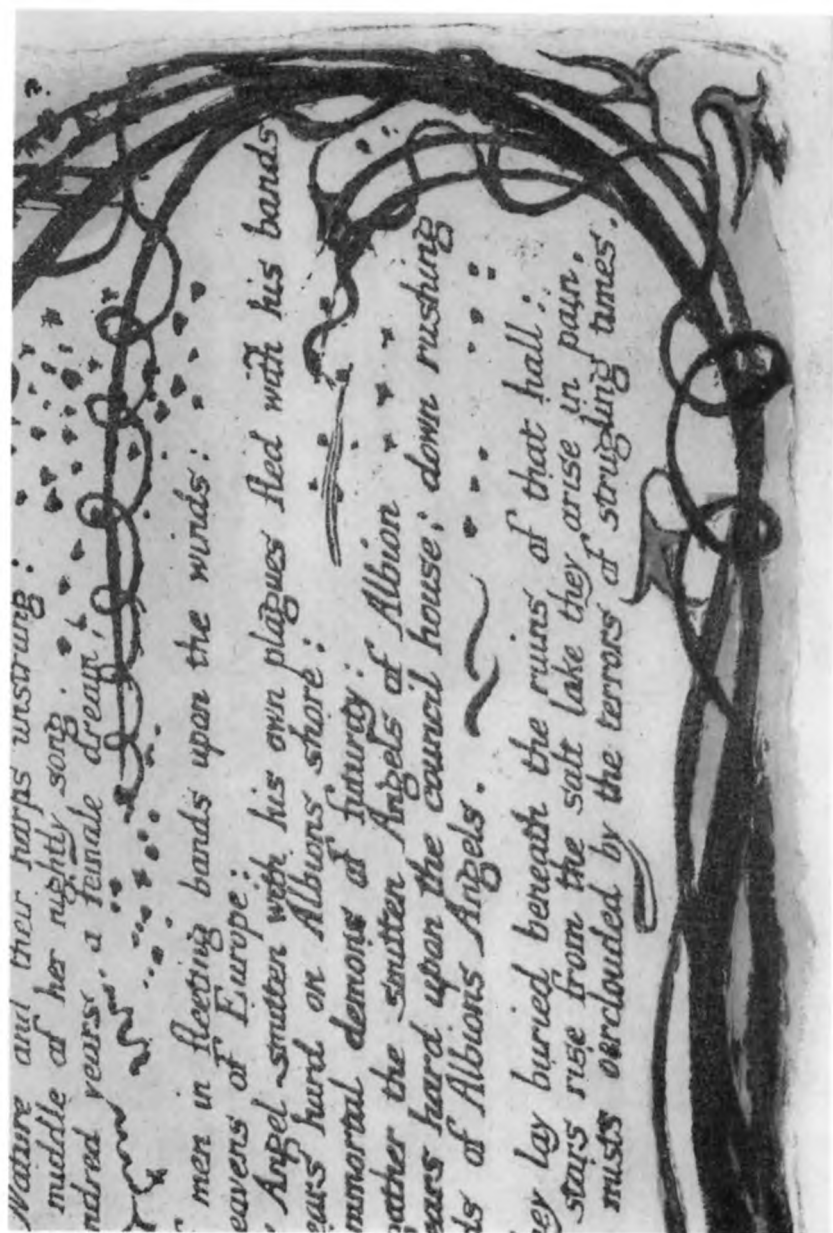 Nature and their harps unstrung:
middle of her nightly song.
ndred years, a female dream!
men in fleeting bands upon the winds:
eavens of Europe:
Angel smitten with his own plagues fled with his bands
ears hard on Albions shore:
mmortal demons of futurity:
ather the smitten Angels of Albion
ears hard upon the council house; down rushing
ds of Albions Angels.
hey lay buried beneath the ruins of that hall:
stars rise from the salt lake they arise in pain.
mists oerclouded by the terrors of strugling times.